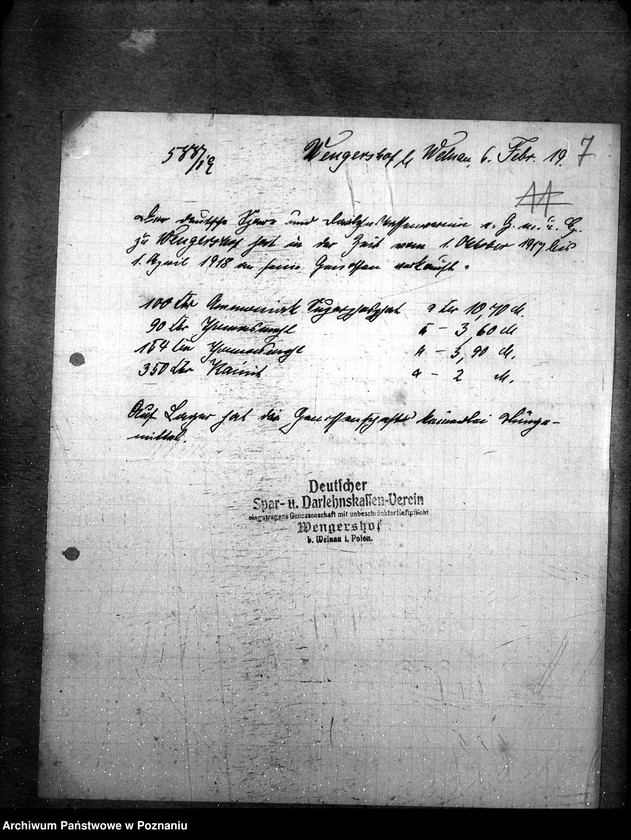 588/19
Wengershof b/ Welnau, 6. Febr. 19. 7
Der deutsche Spar und Darlehnskassenverein e. G. m. u. H.
zu Wengershof hat in der Zeit vom 1. Oktober 1917 bis
1. April 1918 an seine Genossen verkauft.
100 Ctr Ammoniak Superphosphat a Ctr 10,70 M.
90 Ctr a – 3,60 M
154 Ctr a – 3,90 M.
350 Ctr Kainit a – 2 M.
Auf Lager hat die Genossenschaft keinerlei Dünge-
mittel.
Deutscher
Spar- u. Darlehnskassen-Verein
eingetragene Genossenschaft mit unbeschränkter Haftpflicht
Wengershof
b. Welnau i. Posen.
Archiwum Państwowe w Poznaniu